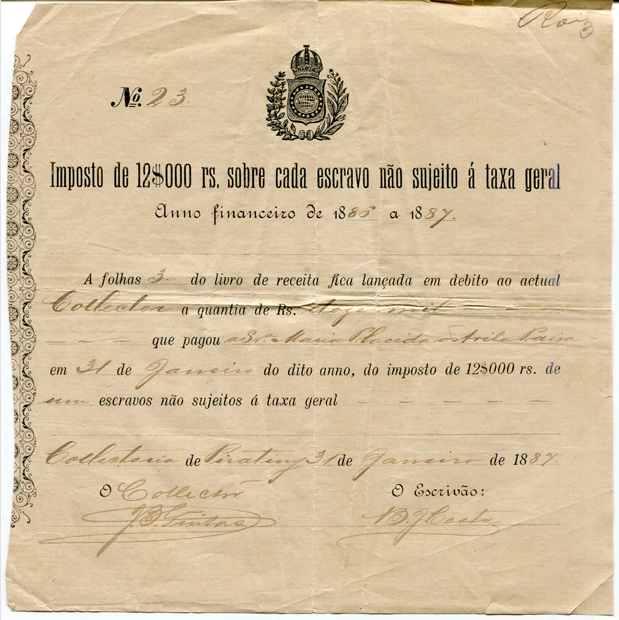 Nº 23.
Imposto de 12$000 rs. sobre cada escravo não sujeito á taxa geral
Anno financeiro de 1886 a 1887.
A folhas 3 do livro de receita fica lançada em debito ao actual
Collector a quantia de Rs. mil
que pagou a Srª Maria Placida
em 31 de Janeiro do dito anno, do imposto de 12$000 rs. de
um escravos não sujeitos á taxa geral
Collectoria de Piratiny 31 de Janeiro de 1887.
O Collector O Escrivão:
Costa